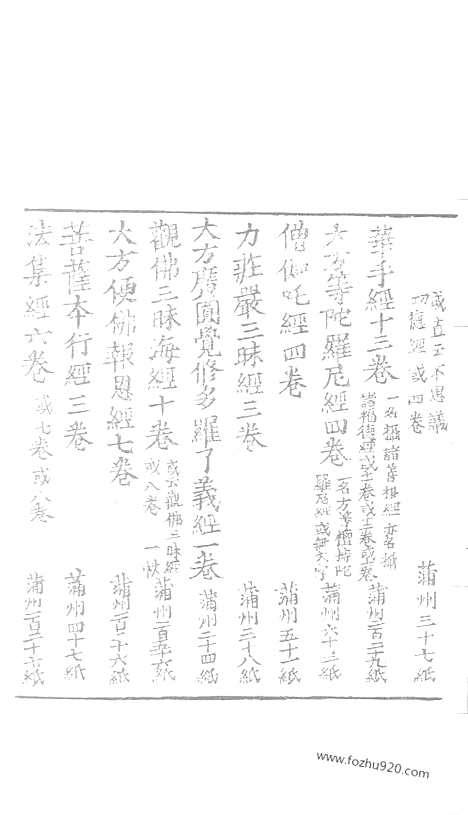 或直云不思議
功德經或四卷
蒲州三十七紙
華手經十三卷
一名攝諸善根經亦名攝
諸福德經或十一卷或十二卷或十卷
蒲州二百二十九紙
大方等陀羅尼經四卷
一名方等檀持陀
羅尼經或無大字
蒲州六十三紙
僧伽吒經四卷
蒲州五十一紙
力莊嚴三昧經三卷
蒲州三十八紙
大方廣圓覺修多羅了義經一卷
蒲州二十四紙
觀佛三昧海經十卷
或云觀佛三昧經
或八卷 一帙
蒲州一百五十六紙
大方便佛報恩經七卷
蒲州一百二十六紙
菩薩本行經三卷
蒲州四十七紙
法集經六卷
或七卷或八卷
蒲州一百二十六紙
www.fozhu920.com